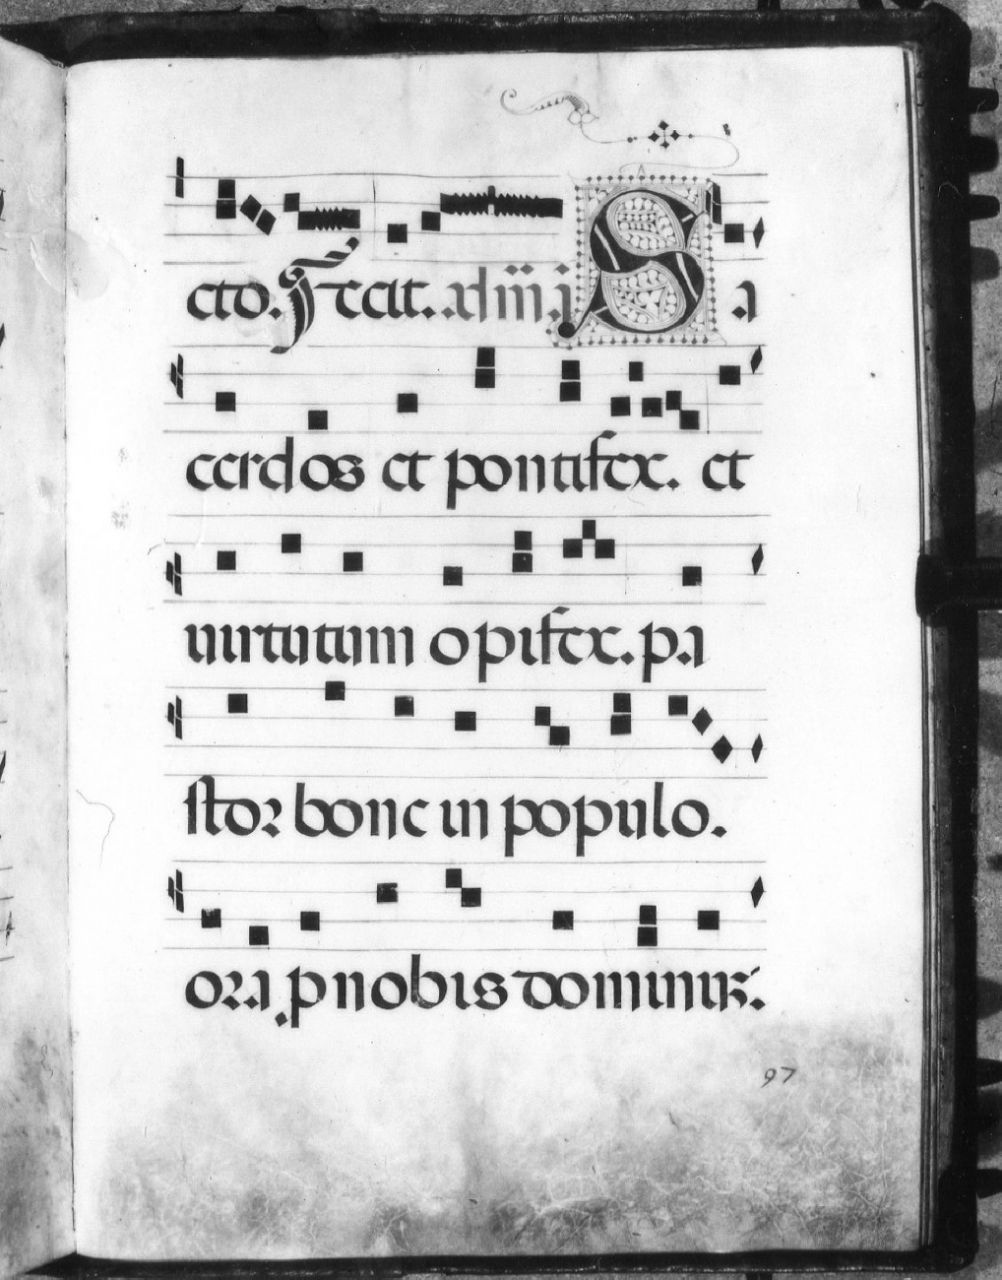 cto. ℣ cat. ad mi. a Sa
cerdos et pontifex. et
uirtutum opifex. pa
stor bone in populo.
ora p nobis dominuʒ.
97